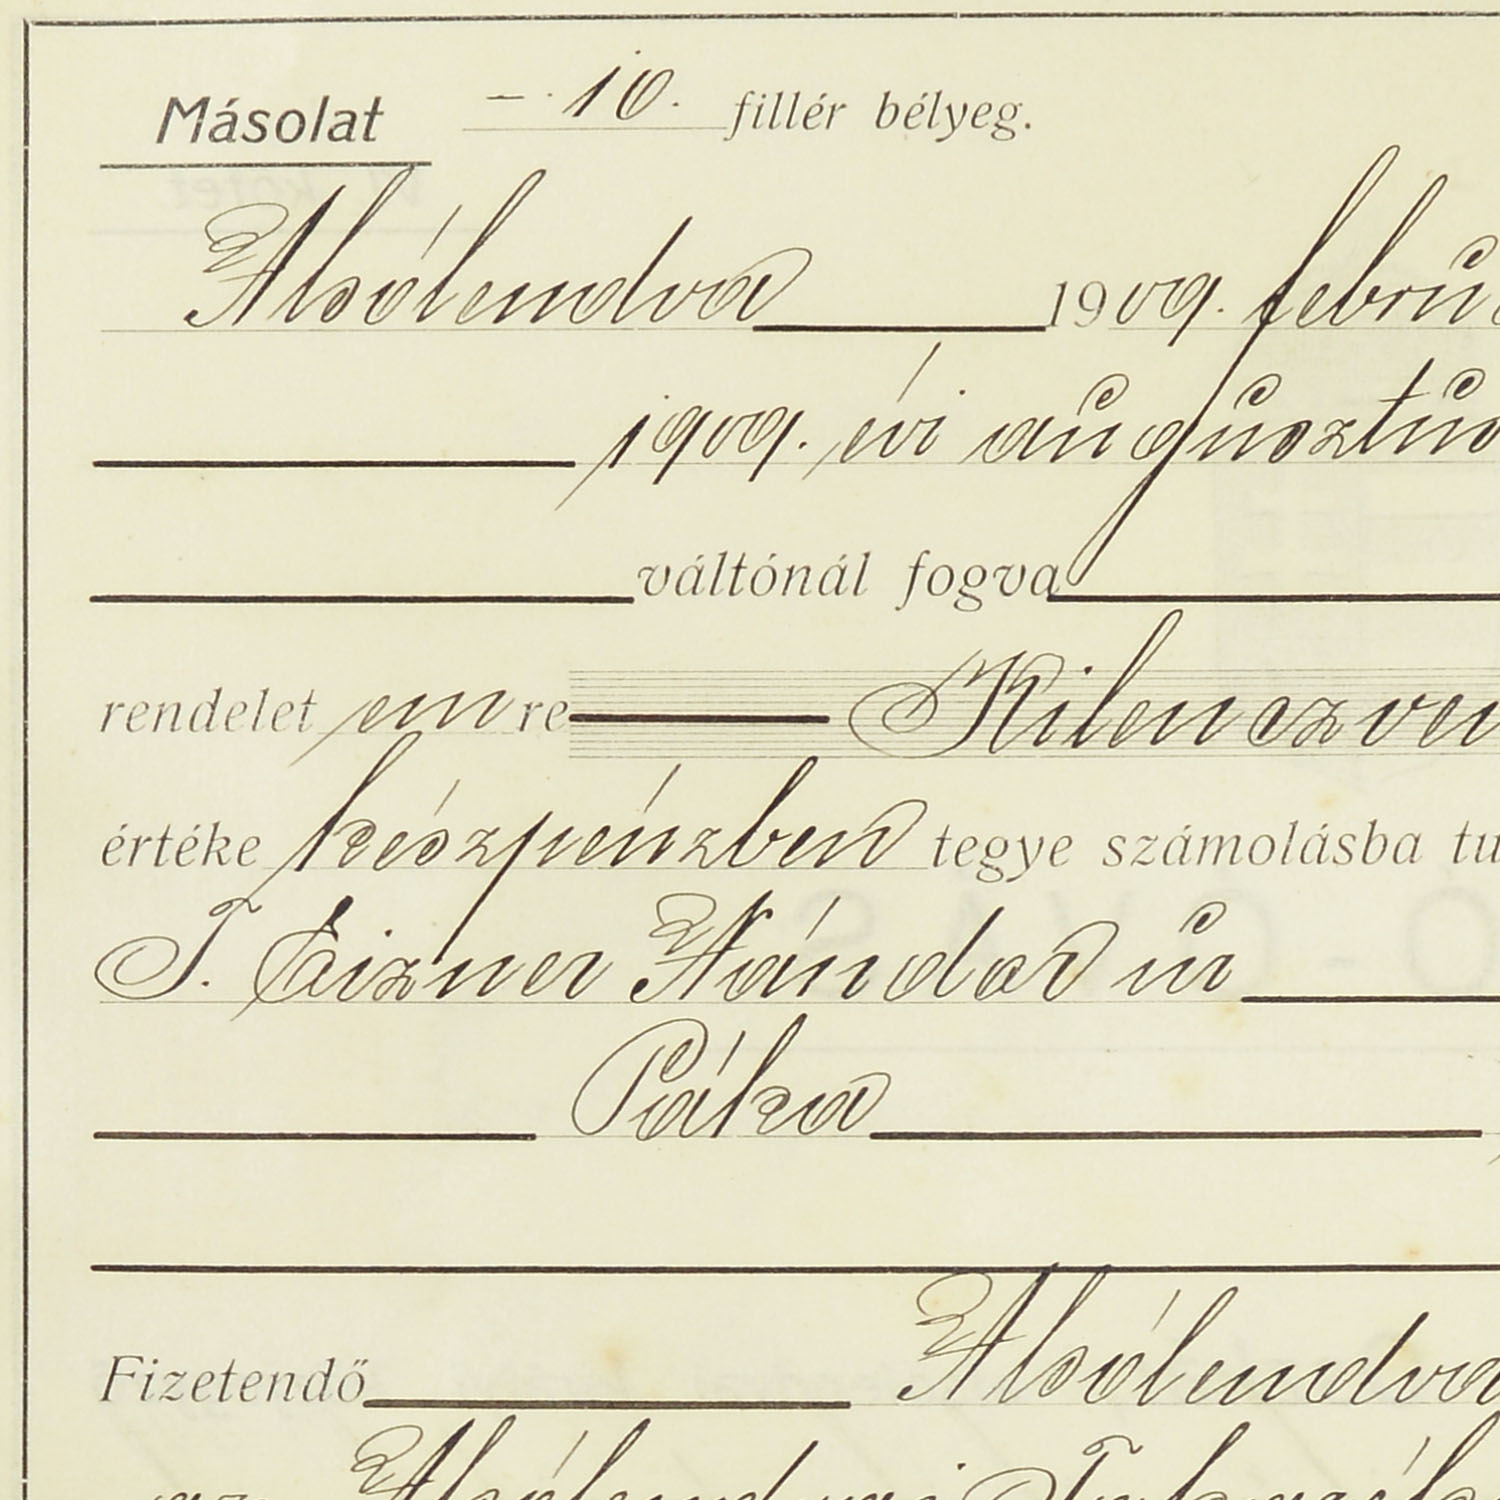 Másolat —. 10. fillér bélyeg.
Alsólendva 1909. febru
1909. évi augusztus
váltónál fogva
rendelet em re Kilenczven
értéke készpénzben tegye számolásba tu
T. Eizner Nándor úr
Páka
Fizetendő Alsólendva
az Alsólendvai Takarék